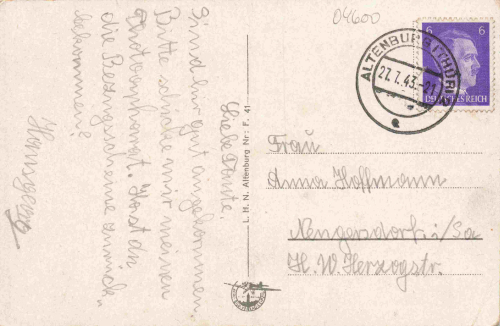 04600
6 6
DEUTSCHES REICH
ALTENBURG (THÜR)
27.7.43.-21
e
Liebe Tante.
Sind hier gut angekommen.
Bitte schicke mir meinen
Hast du
die Bezugscheine zurück
bekommen?
L. H. N. Altenburg Nr: F. 41
Frau
Anna Hoffmann
Neugersdorf i/Sa
H. W. Herzogstr.